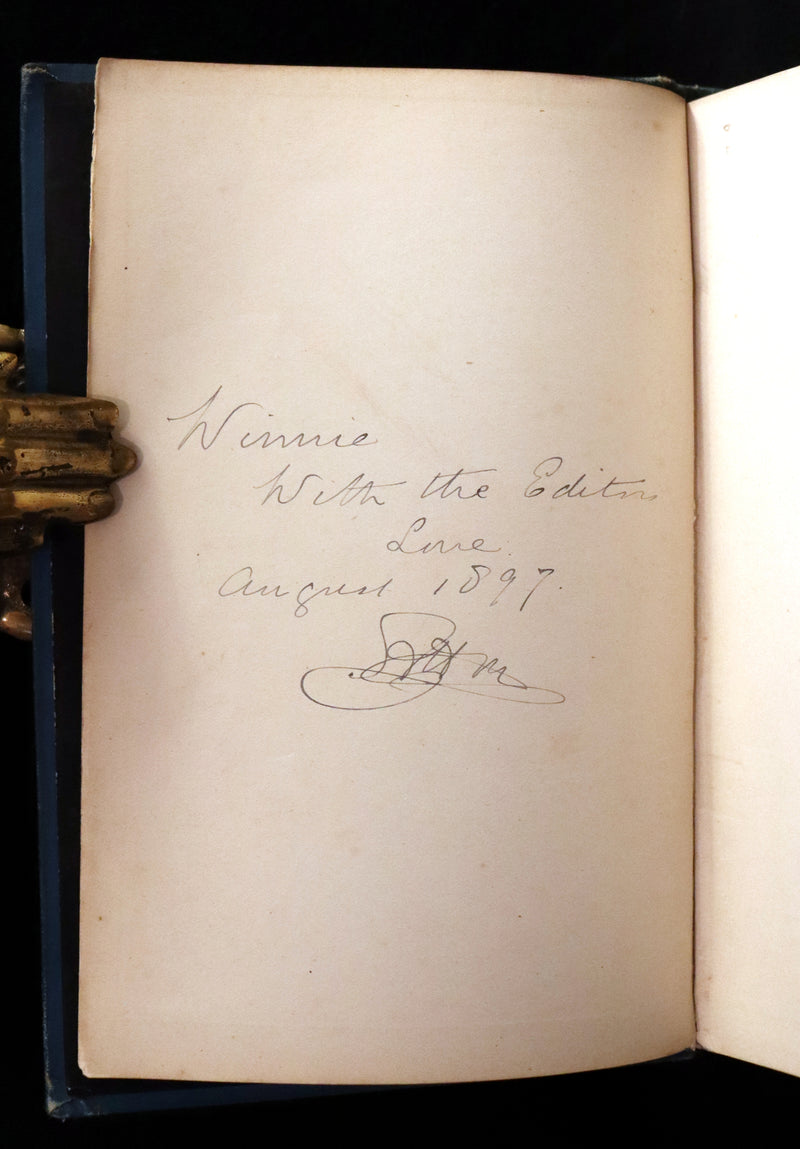 Winnie
With the Editors
Love.
August 1897.